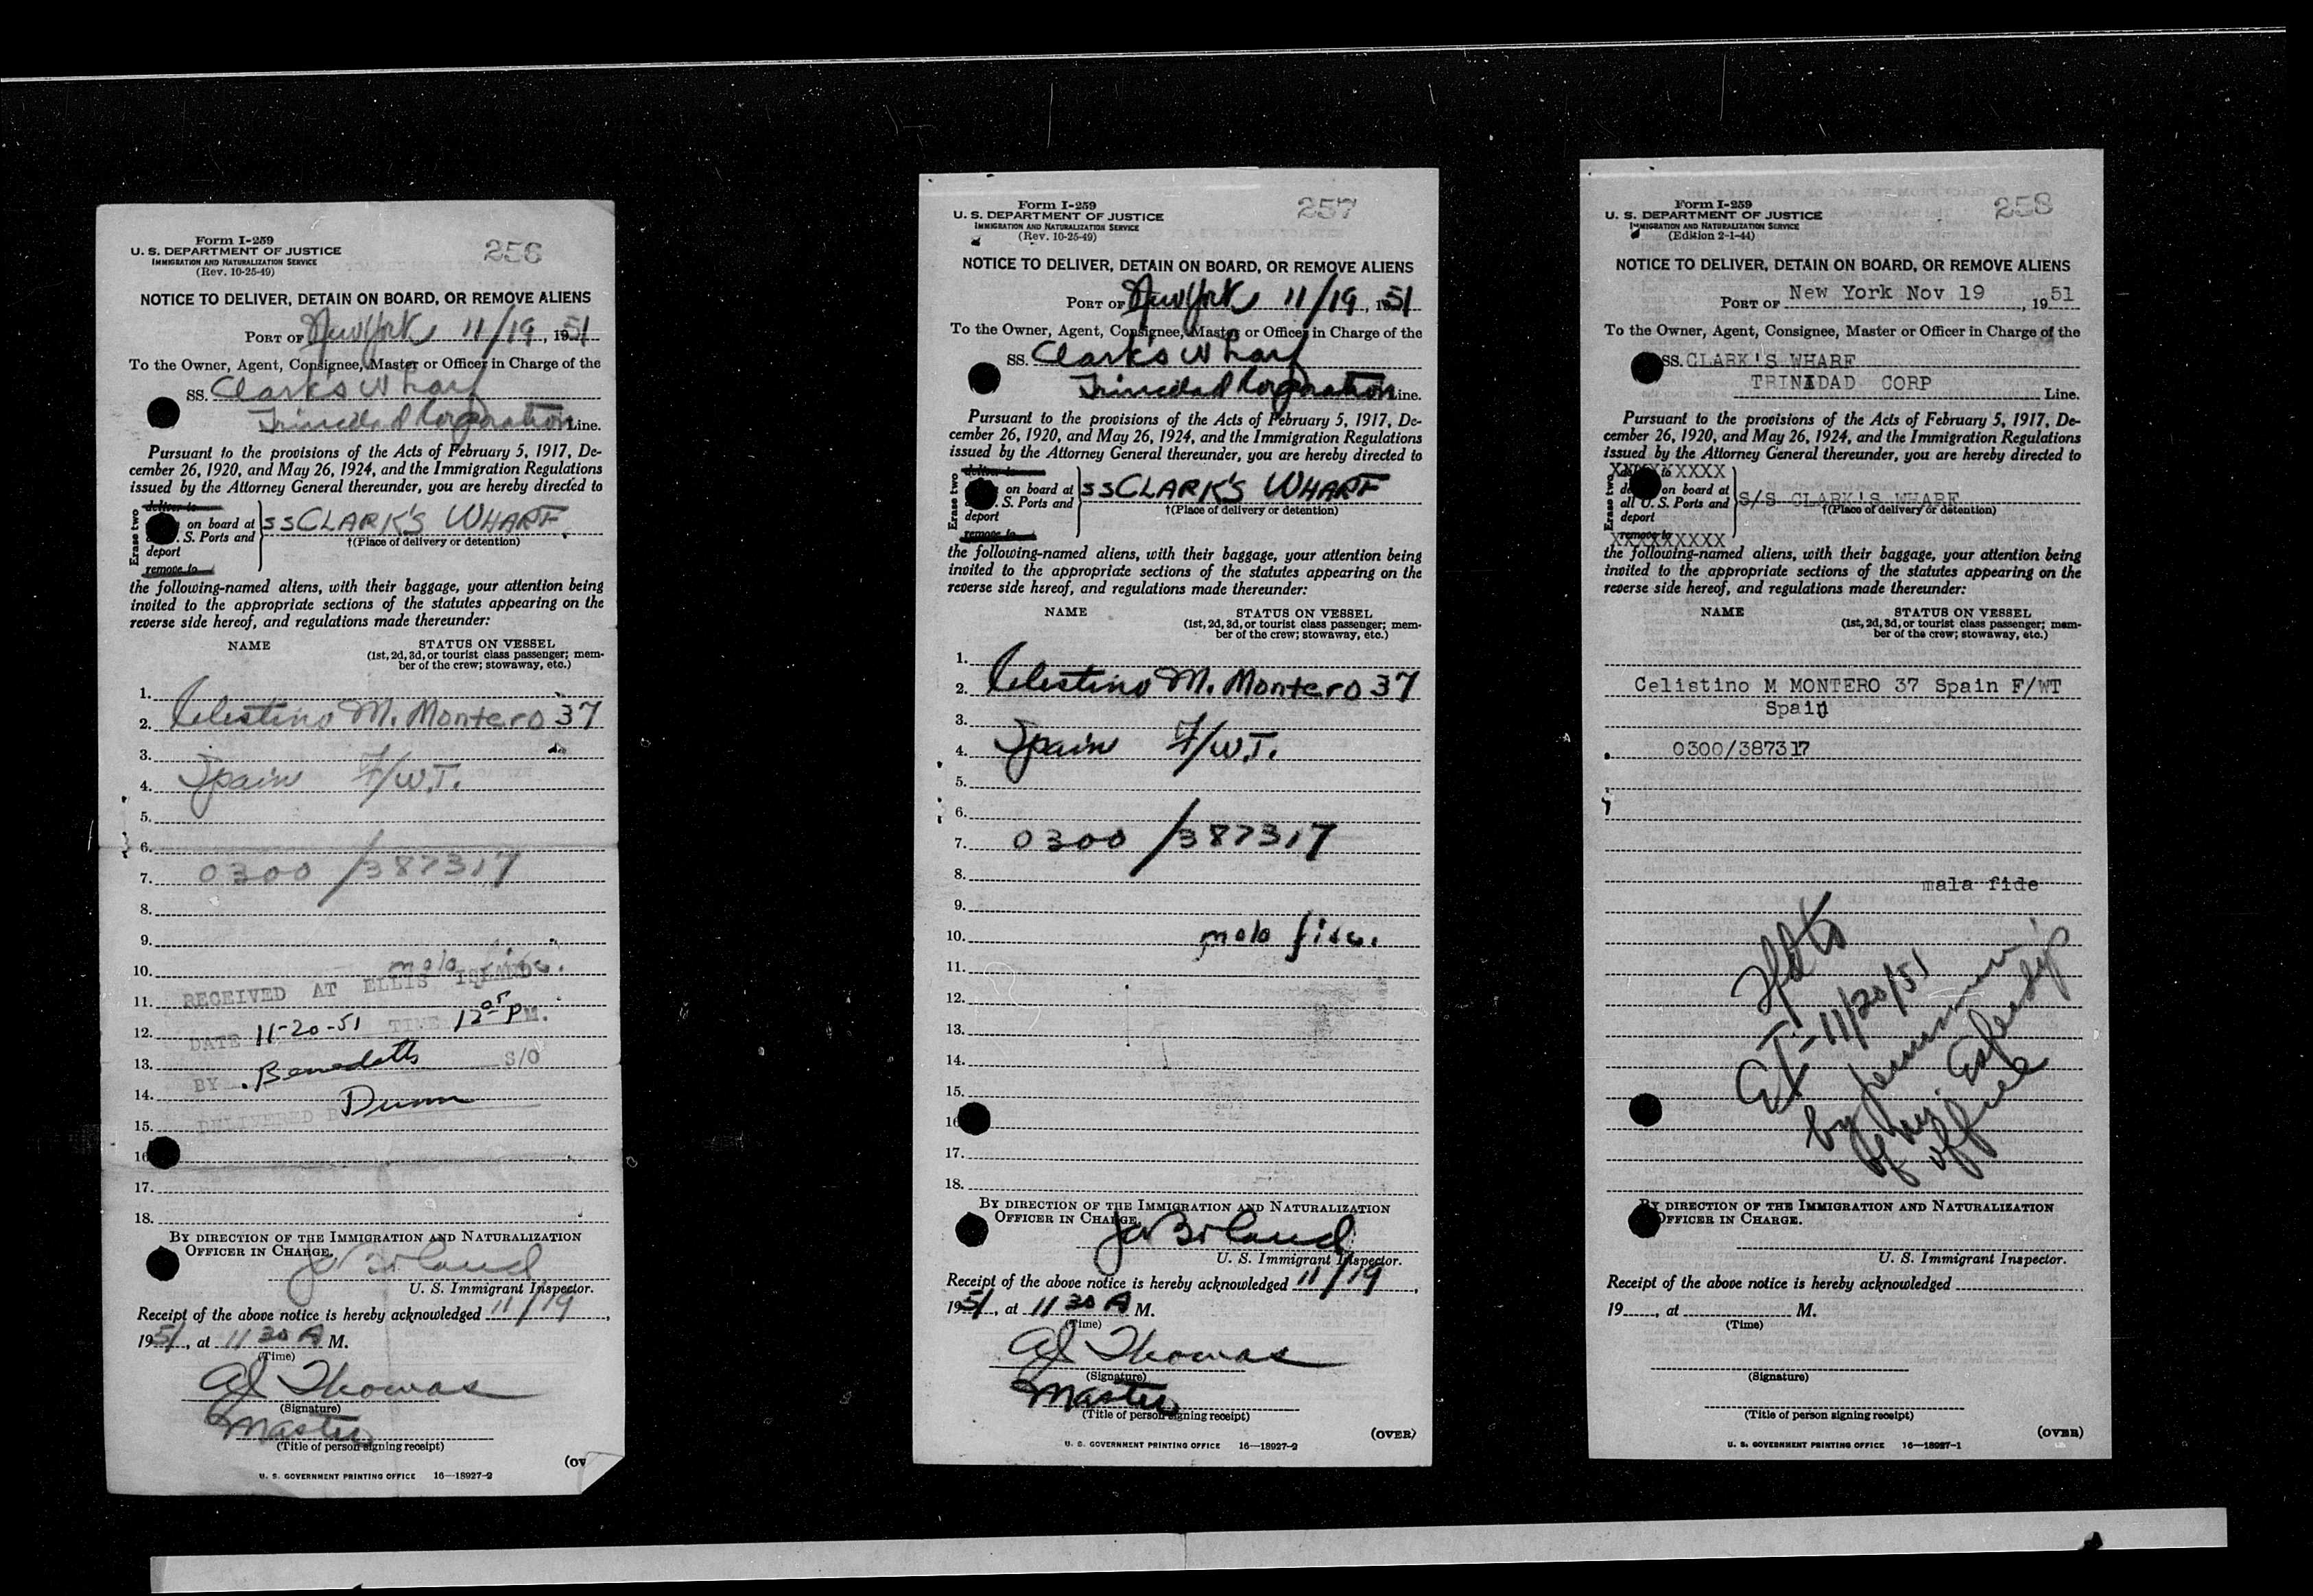 Form I-259
U. S. DEPARTMENT OF JUSTICE
IMMIGRATION AND NATURALIZATION SERVICE
(Rev. 10-25-49)
256
NOTICE TO DELIVER, DETAIN ON BOARD, OR REMOVE ALIENS
PORT OF New York 11/19, 1951
To the Owner, Agent, Consignee, Master or Officer in Charge of the
SS. Clark's Wharf
Trinidad Corporation Line.
Pursuant to the provisions of the Acts of February 5, 1917, De-
cember 26, 1920, and May 26, 1924, and the Immigration Regulations
issued by the Attorney General thereunder, you are hereby directed to
Erase two
deliver to
on board at
S. Ports and
deport
remove to
SS CLARK'S WHARF
†(Place of delivery or detention)
the following-named aliens, with their baggage, your attention being
invited to the appropriate sections of the statutes appearing on the
reverse side hereof, and regulations made thereunder:
NAME STATUS ON VESSEL
(1st, 2d, 3d, or tourist class passenger; mem-
ber of the crew; stowaway, etc.)
1.
2. Celestino M. Montero 37
3.
4. Spain F/W.T.
5.
6.
7. 0300/387317
8.
9.
10. mala fide.
11. RECEIVED AT ELLIS ISLAND
12. DATE 11-20-51 TIME 12 05 P M.
13. BY Benedatts S/O
14. Dunn
15. DELIVERED B
16
17.
18.
BY DIRECTION OF THE IMMIGRATION AND NATURALIZATION
OFFICER IN CHARGE.
U. S. Immigrant Inspector.
Receipt of the above notice is hereby acknowledged 11/19,
1951, at 11 30 A M.
(Time)
Thomas
(Signature)
Master
(Title of person signing receipt)
(OV
U. S. GOVERNMENT PRINTING OFFICE 16—18927-2
Form I-259
U. S. DEPARTMENT OF JUSTICE
IMMIGRATION AND NATURALIZATION SERVICE
(Rev. 10-25-49)
257
NOTICE TO DELIVER, DETAIN ON BOARD, OR REMOVE ALIENS
PORT OF New York 11/19, 1951
To the Owner, Agent, Consignee, Master or Officer in Charge of the
SS. Clark's Wharf
Trinidad Corporation Line.
Pursuant to the provisions of the Acts of February 5, 1917, De-
cember 26, 1920, and May 26, 1924, and the Immigration Regulations
issued by the Attorney General thereunder, you are hereby directed to
Erase two
deliver to
on board at
. S. Ports and
deport
remove to
SS CLARK'S WHARF
†(Place of delivery or detention)
the following-named aliens, with their baggage, your attention being
invited to the appropriate sections of the statutes appearing on the
reverse side hereof, and regulations made thereunder:
NAME STATUS ON VESSEL
(1st, 2d, 3d, or tourist class passenger; mem-
ber of the crew; stowaway, etc.)
1.
2. Celestino M. Montero 37
3.
4. Spain F/W.T.
5.
6.
7. 0300/387317
8.
9.
10. mala fide.
11.
12.
13.
14.
15.
16
17.
18.
BY DIRECTION OF THE IMMIGRATION AND NATURALIZATION
OFFICER IN CHARGE.
U. S. Immigrant Inspector.
Receipt of the above notice is hereby acknowledged 11/19,
1951, at 11 30 A M.
(Time)
Thomas
(Signature)
Master
(Title of person signing receipt)
(OVER)
U. S. GOVERNMENT PRINTING OFFICE 16—18927-2
Form I-259
U. S. DEPARTMENT OF JUSTICE
IMMIGRATION AND NATURALIZATION SERVICE
(Edition 2-1-44)
258
NOTICE TO DELIVER, DETAIN ON BOARD, OR REMOVE ALIENS
PORT OF New York Nov 19, 1951
To the Owner, Agent, Consignee, Master or Officer in Charge of the
SS. CLARK'S WHARF
TRINIDAD CORP Line.
Pursuant to the provisions of the Acts of February 5, 1917, De-
cember 26, 1920, and May 26, 1924, and the Immigration Regulations
issued by the Attorney General thereunder, you are hereby directed to
Erase two
to
on board at
all U. S. Ports and
deport
remove to
S/S CLARK'S WHARF
†(Place of delivery or detention)
the following-named aliens, with their baggage, your attention being
invited to the appropriate sections of the statutes appearing on the
reverse side hereof, and regulations made thereunder:
NAME STATUS ON VESSEL
(1st, 2d, 3d, or tourist class passenger; mem-
ber of the crew; stowaway, etc.)
Celistino M MONTERO 37 Spain F/WT
Spain
0300/387317
mala fide
EI - 11/20/51
by
of
office
BY DIRECTION OF THE IMMIGRATION AND NATURALIZATION
OFFICER IN CHARGE.
U. S. Immigrant Inspector.
Receipt of the above notice is hereby acknowledged
19 , at M.
(Time)
(Signature)
(Title of person signing receipt)
(OVER)
U. S. GOVERNMENT PRINTING OFFICE 16—18927-1